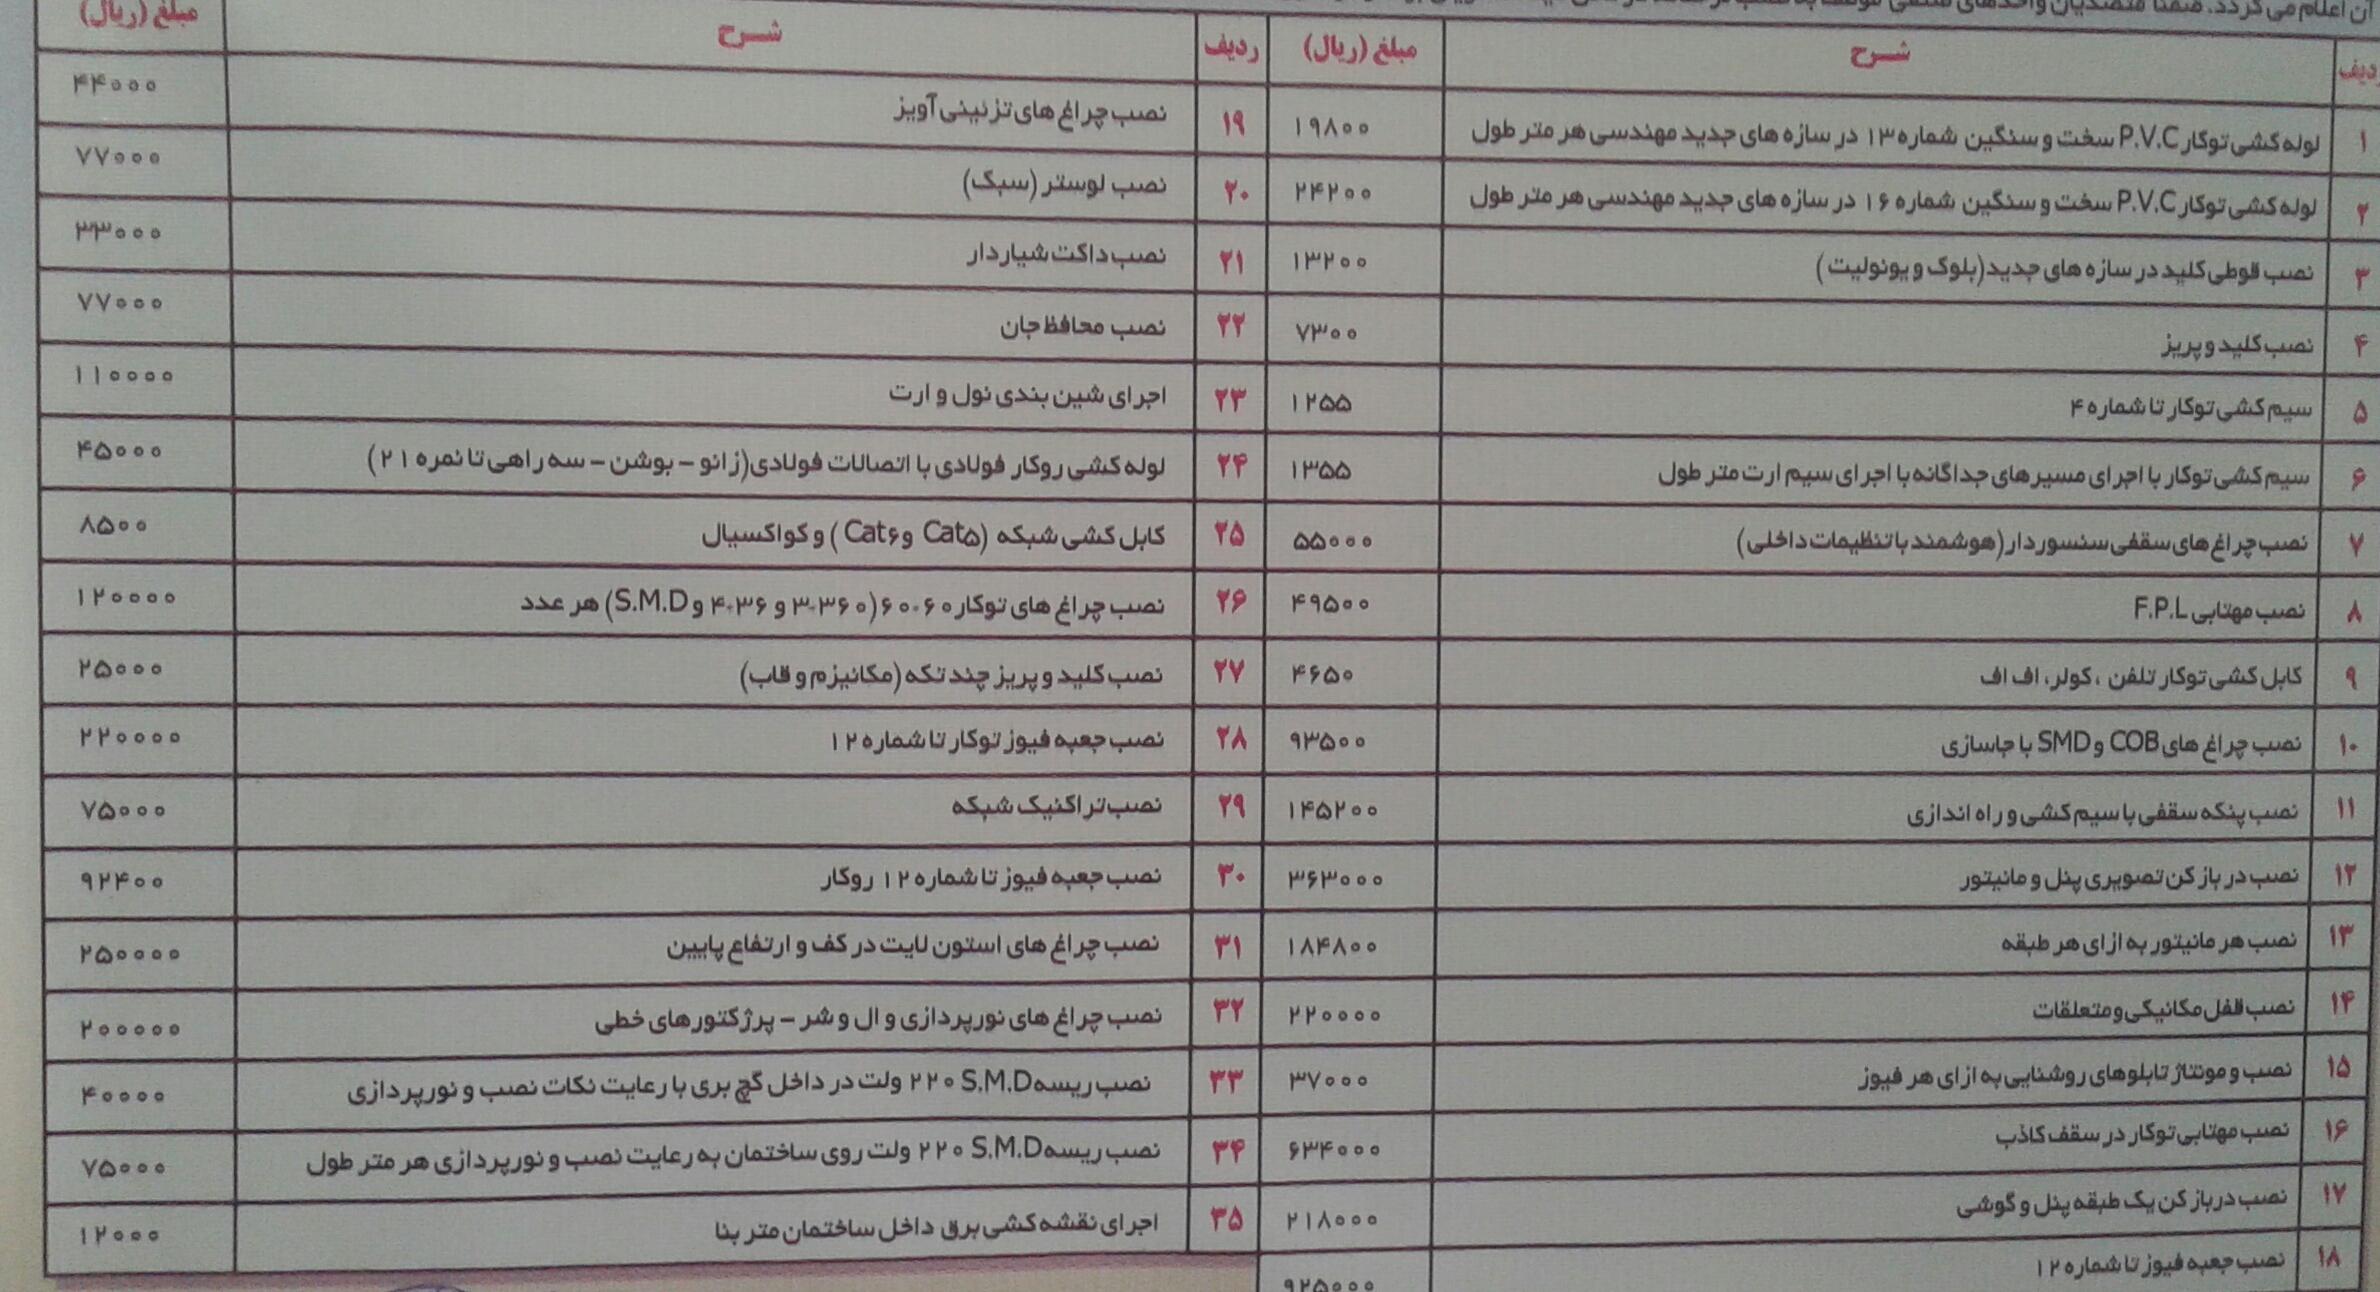 آن اعلام می گردد. ضمنا متصدیان واحدهای صنفی موظف به نصب
ردیف شـــرح مبلغ (ریال)
۱ لوله کشی توکار P.V.C سخت و سنگین شماره ۱۳ در سازه های جدید مهندسی هر متر طول ۱۹۸۰۰
۲ لوله کشی توکار P.V.C سخت و سنگین شماره ۱۶ در سازه های جدید مهندسی هر متر طول ۲۴۲۰۰
۳ نصب قوطی کلید در سازه های جدید (بلوک و یونولیت) ۱۳۲۰۰
۴ نصب کلید و پریز ۷۳۰۰
۵ سیم کشی توکار تا شماره ۴ ۱۲۵۵
۶ سیم کشی توکار با اجرای مسیرهای جداگانه با اجرای سیم ارت متر طول ۱۳۵۵
۷ نصب چراغ های سقفی سنسوردار (هوشمند با تنظیمات داخلی) ۵۵۰۰۰
۸ نصب مهتابی F.P.L ۴۹۵۰۰
۹ کابل کشی توکار تلفن ، کولر، اف اف ۴۶۵۰
۱۰ نصب چراغ های COB و SMD با جاسازی ۹۳۵۰۰
۱۱ نصب پنکه سقفی با سیم کشی و راه اندازی ۱۴۵۲۰۰
۱۲ نصب در باز کن تصویری پنل و مانیتور ۳۶۳۰۰۰
۱۳ نصب هر مانیتور به ازای هر طبقه ۱۸۴۸۰۰
۱۴ نصب قفل مکانیکی و متعلقات ۲۲۰۰۰۰
۱۵ نصب و مونتاژ تابلوهای روشنایی به ازای هر فیوز ۳۷۰۰۰
۱۶ نصب مهتابی توکار در سقف کاذب ۶۳۴۰۰۰
۱۷ نصب درباز کن یک طبقه پنل و گوشی ۲۱۸۰۰۰
۱۸ نصب جعبه فیوز تا شماره ۱۲ ۹۲۵۰۰۰
ردیف شـــرح مبلغ (ریال)
۱۹ نصب چراغ های تزئینی آویز ۴۴۰۰۰
۲۰ نصب لوستر (سبک) ۷۷۰۰۰
۲۱ نصب داکت شیاردار ۳۳۰۰۰
۲۲ نصب محافظ جان ۷۷۰۰۰
۲۳ اجرای شین بندی نول و ارت ۱۱۰۰۰۰
۲۴ لوله کشی روکار فولادی با اتصالات فولادی (زانو – بوشن – سه راهی تا نمره ۲۱) ۴۵۰۰۰
۲۵ کابل کشی شبکه (Cat۵ و Cat۶) و کواکسیال ۸۵۰۰
۲۶ نصب چراغ های توکار ۶۰-۶۰ (۳-۳۶۰ و ۳۶-۴ و S.M.D) هر عدد ۱۲۰۰۰۰
۲۷ نصب کلید و پریز چند تکه (مکانیزم و قاب) ۲۵۰۰۰
۲۸ نصب جعبه فیوز توکار تا شماره ۱۲ ۲۲۰۰۰۰
۲۹ نصب تراکنیک شبکه ۷۵۰۰۰
۳۰ نصب جعبه فیوز تا شماره ۱۲ روکار ۹۲۴۰۰
۳۱ نصب چراغ های استون لایت در کف و ارتفاع پایین ۲۵۰۰۰۰
۳۲ نصب چراغ های نورپردازی و ال و شر – پرژکتورهای خطی ۲۰۰۰۰۰
۳۳ نصب ریسه S.M.D ۲۲۰ ولت در داخل گچ بری با رعایت نکات نصب و نورپردازی ۴۰۰۰۰
۳۴ نصب ریسه S.M.D ۲۲۰ ولت روی ساختمان به رعایت نصب و نورپردازی هر متر طول ۷۵۰۰۰
۳۵ اجرای نقشه کشی برق داخل ساختمان متر بنا ۱۲۰۰۰